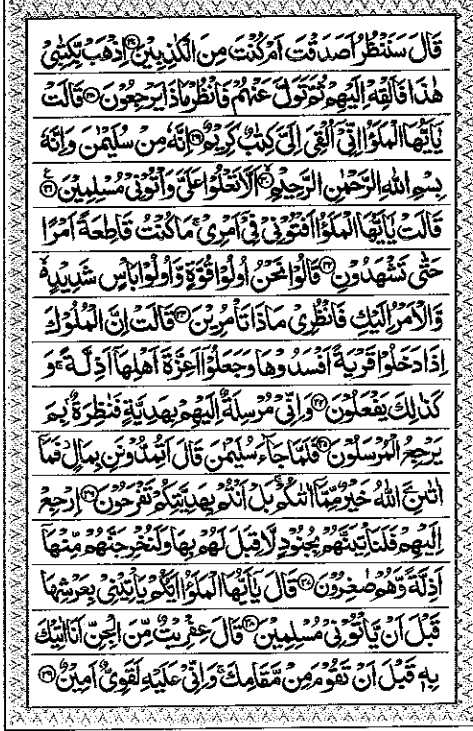 قَالَ سَنَنْظُرُ اَصَدَقْتَ اَمْ كُنْتَ مِنَ الْكٰذِبِيْنَ ﴿۲۷﴾ اِذْهَبْ بِّكِتٰبِيْ
هٰذَا فَاَلْقِهْ اِلَيْهِمْ ثُمَّ تَوَلَّ عَنْهُمْ فَانْظُرْ مَاذَا يَرْجِعُوْنَ ﴿۲۸﴾ قَالَتْ
يٰۤاَيُّهَا الْمَلَؤُا اِنِّيْۤ اُلْقِيَ اِلَيَّ كِتٰبٌ كَرِيْمٌ ﴿۲۹﴾ اِنَّهٗ مِنْ سُلَيْمٰنَ وَاِنَّهٗ
بِسْمِ اللّٰهِ الرَّحْمٰنِ الرَّحِيْمِ ﴿۳۰﴾ اَلَّا تَعْلُوْا عَلَيَّ وَاْتُوْنِيْ مُسْلِمِيْنَ ﴿۳۱﴾
قَالَتْ يٰۤاَيُّهَا الْمَلَؤُا اَفْتُوْنِيْ فِيْۤ اَمْرِيْ مَا كُنْتُ قَاطِعَةً اَمْرًا
حَتّٰى تَشْهَدُوْنِ ﴿۳۲﴾ قَالُوْا نَحْنُ اُولُوْا قُوَّةٍ وَّاُولُوْا بَاْسٍ شَدِيْدٍ
وَّالْاَمْرُ اِلَيْكِ فَانْظُرِيْ مَاذَا تَاْمُرِيْنَ ﴿۳۳﴾ قَالَتْ اِنَّ الْمُلُوْكَ
اِذَا دَخَلُوْا قَرْيَةً اَفْسَدُوْهَا وَجَعَلُوْۤا اَعِزَّةَ اَهْلِهَاۤ اَذِلَّةً وَ
كَذٰلِكَ يَفْعَلُوْنَ ﴿۳۴﴾ وَاِنِّيْ مُرْسِلَةٌ اِلَيْهِمْ بِهَدِيَّةٍ فَنٰظِرَةٌۢ بِمَ
يَرْجِعُ الْمُرْسَلُوْنَ ﴿۳۵﴾ فَلَمَّا جَآءَ سُلَيْمٰنَ قَالَ اَتُمِدُّوْنَنِ بِمَالٍ فَمَاۤ
اٰتٰىنِۦَ اللّٰهُ خَيْرٌ مِّمَّاۤ اٰتٰىكُمْ بَلْ اَنْتُمْ بِهَدِيَّتِكُمْ تَفْرَحُوْنَ ﴿۳۶﴾ اِرْجِعْ
اِلَيْهِمْ فَلَنَاْتِيَنَّهُمْ بِجُنُوْدٍ لَّا قِبَلَ لَهُمْ بِهَا وَلَنُخْرِجَنَّهُمْ مِّنْهَاۤ
اَذِلَّةً وَّهُمْ صٰغِرُوْنَ ﴿۳۷﴾ قَالَ يٰۤاَيُّهَا الْمَلَؤُا اَيُّكُمْ يَاْتِيْنِيْ بِعَرْشِهَا
قَبْلَ اَنْ يَّاْتُوْنِيْ مُسْلِمِيْنَ ﴿۳۸﴾ قَالَ عِفْرِيْتٌ مِّنَ الْجِنِّ اَنَا اٰتِيْكَ
بِهٖ قَبْلَ اَنْ تَقُوْمَ مِنْ مَّقَامِكَ وَاِنِّيْ عَلَيْهِ لَقَوِيٌّ اَمِيْنٌ ﴿۳۹﴾